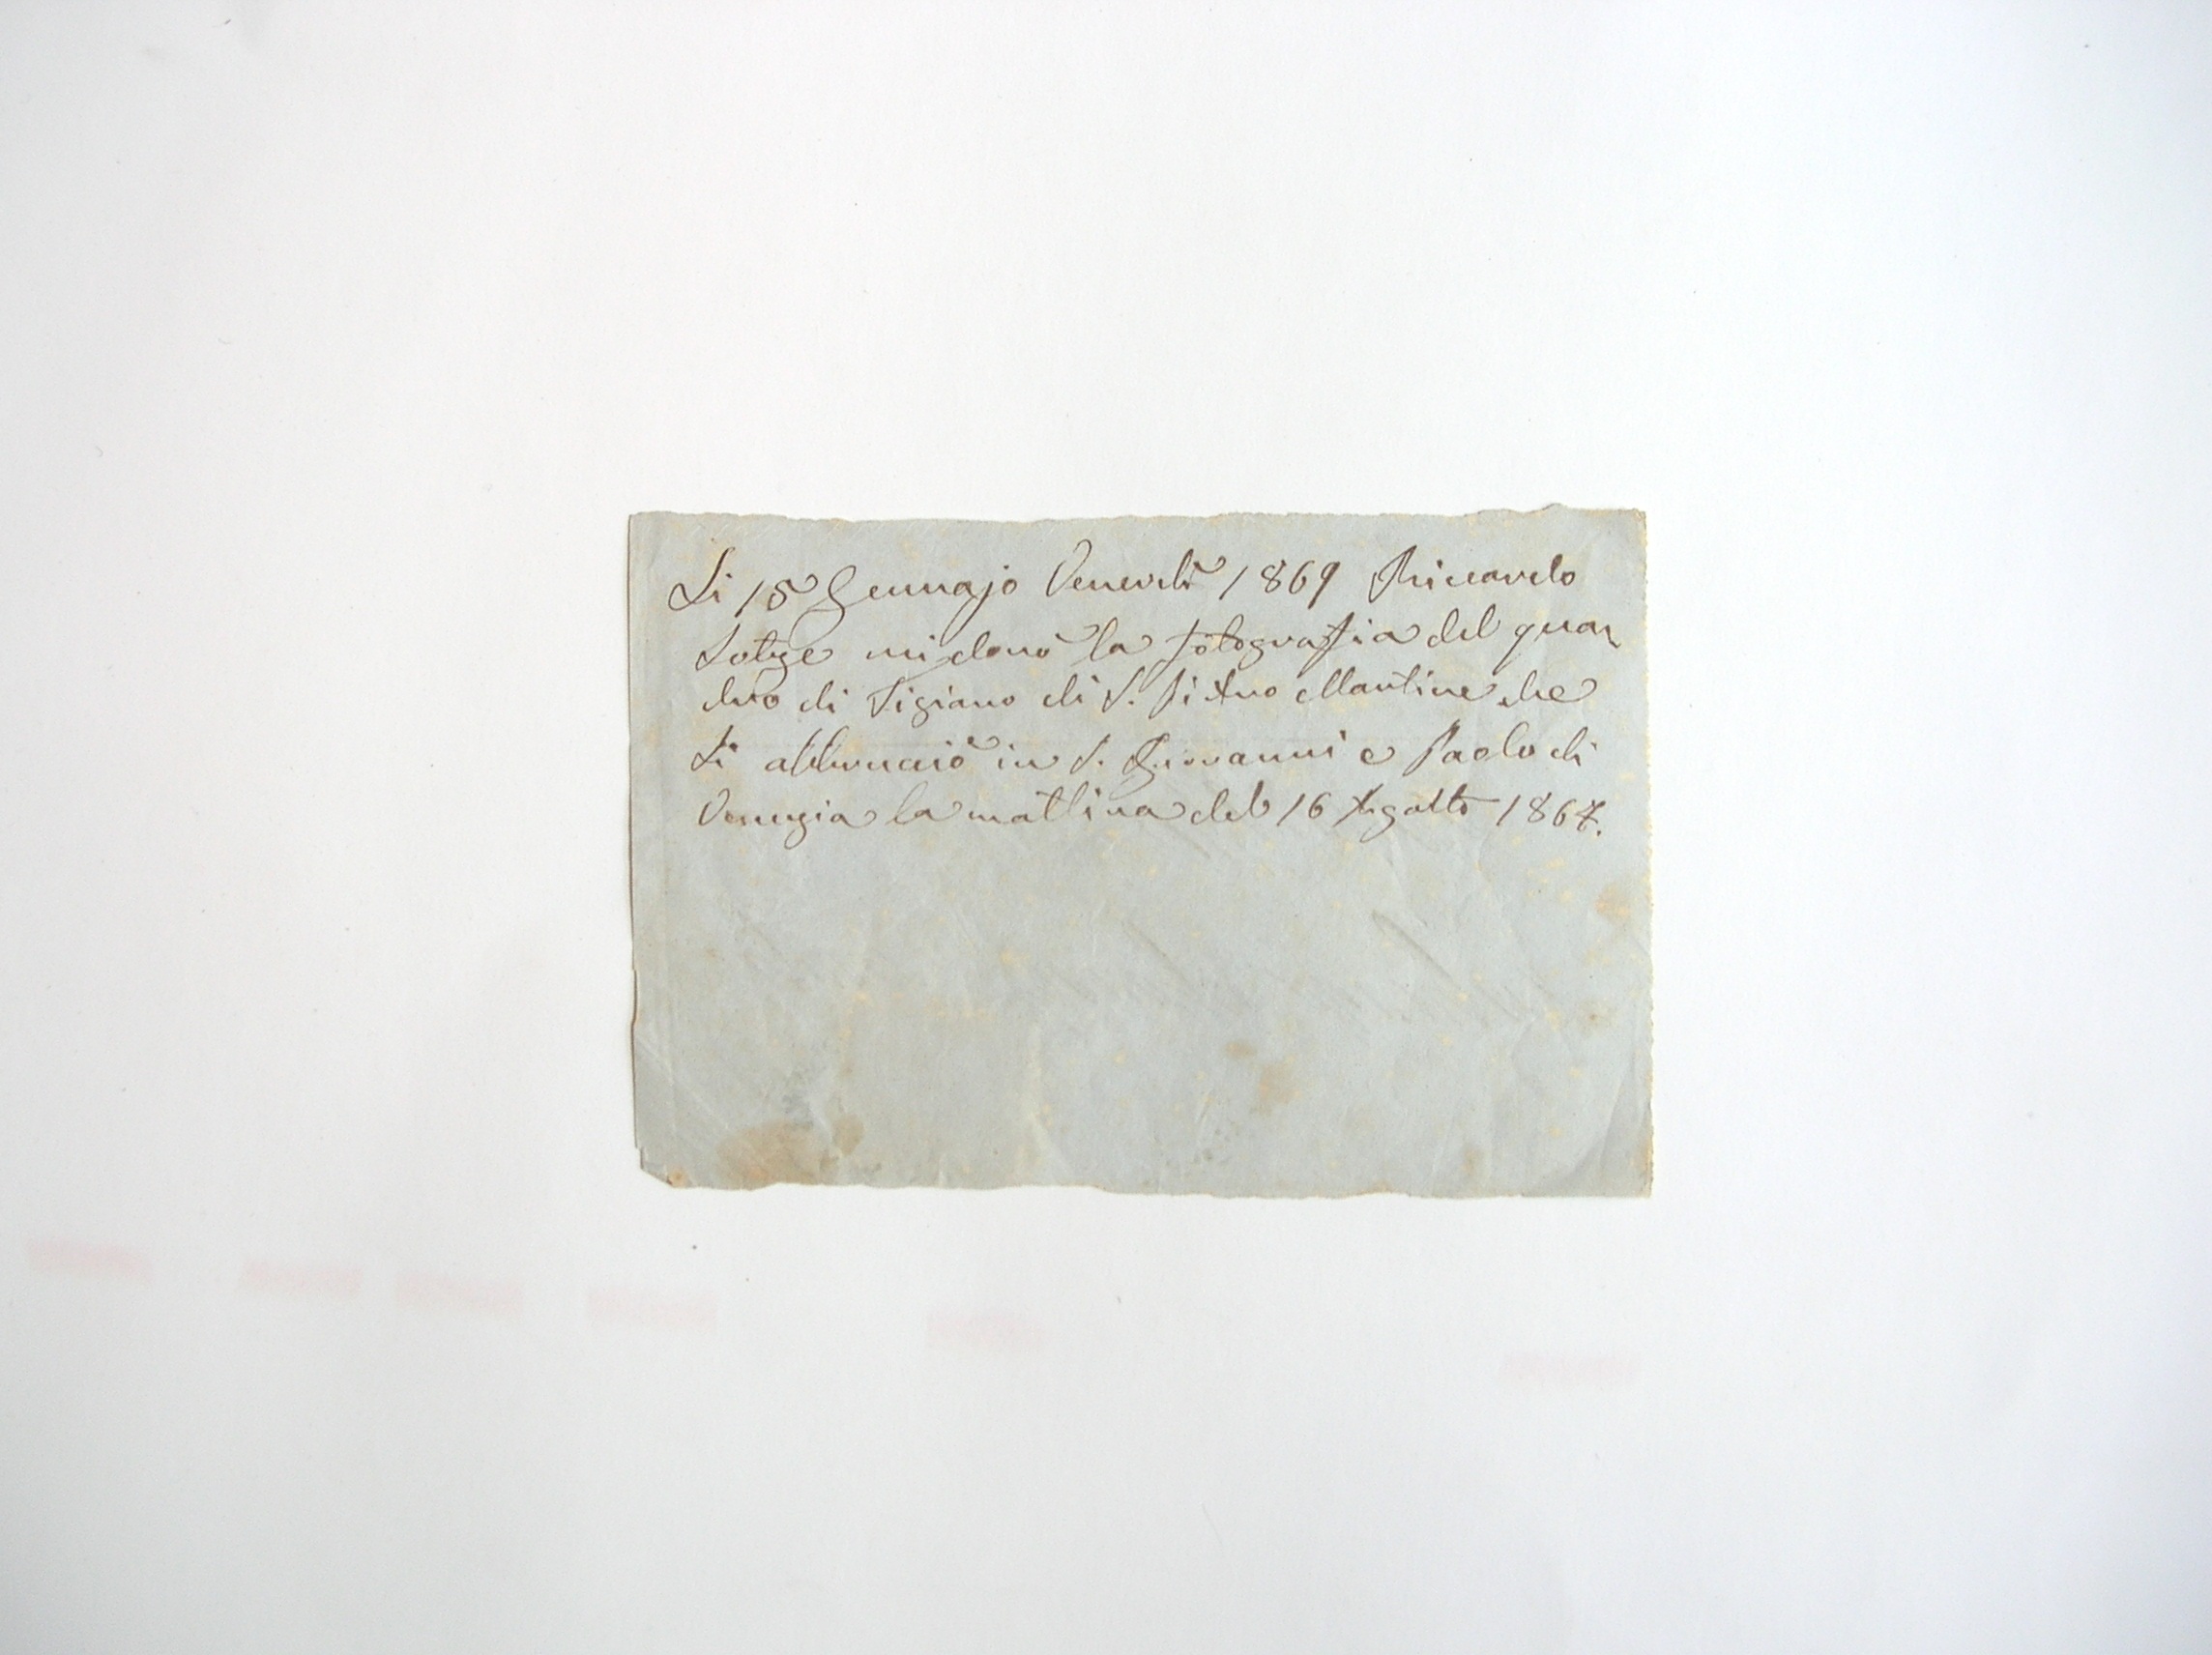 Li 15 Gennajo Venerdì 1869 Riccardo
mi donò la fotografia del qua-
dro di Tiziano di S. Pietro Martire che
si abbrucciò in S. Giovanni e Paolo di
Venezia la mattina del 16 Agosto 1867.